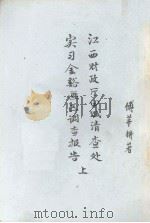 江西财政厅清查处
实习金谿县调查报告
上
傅莘耕著